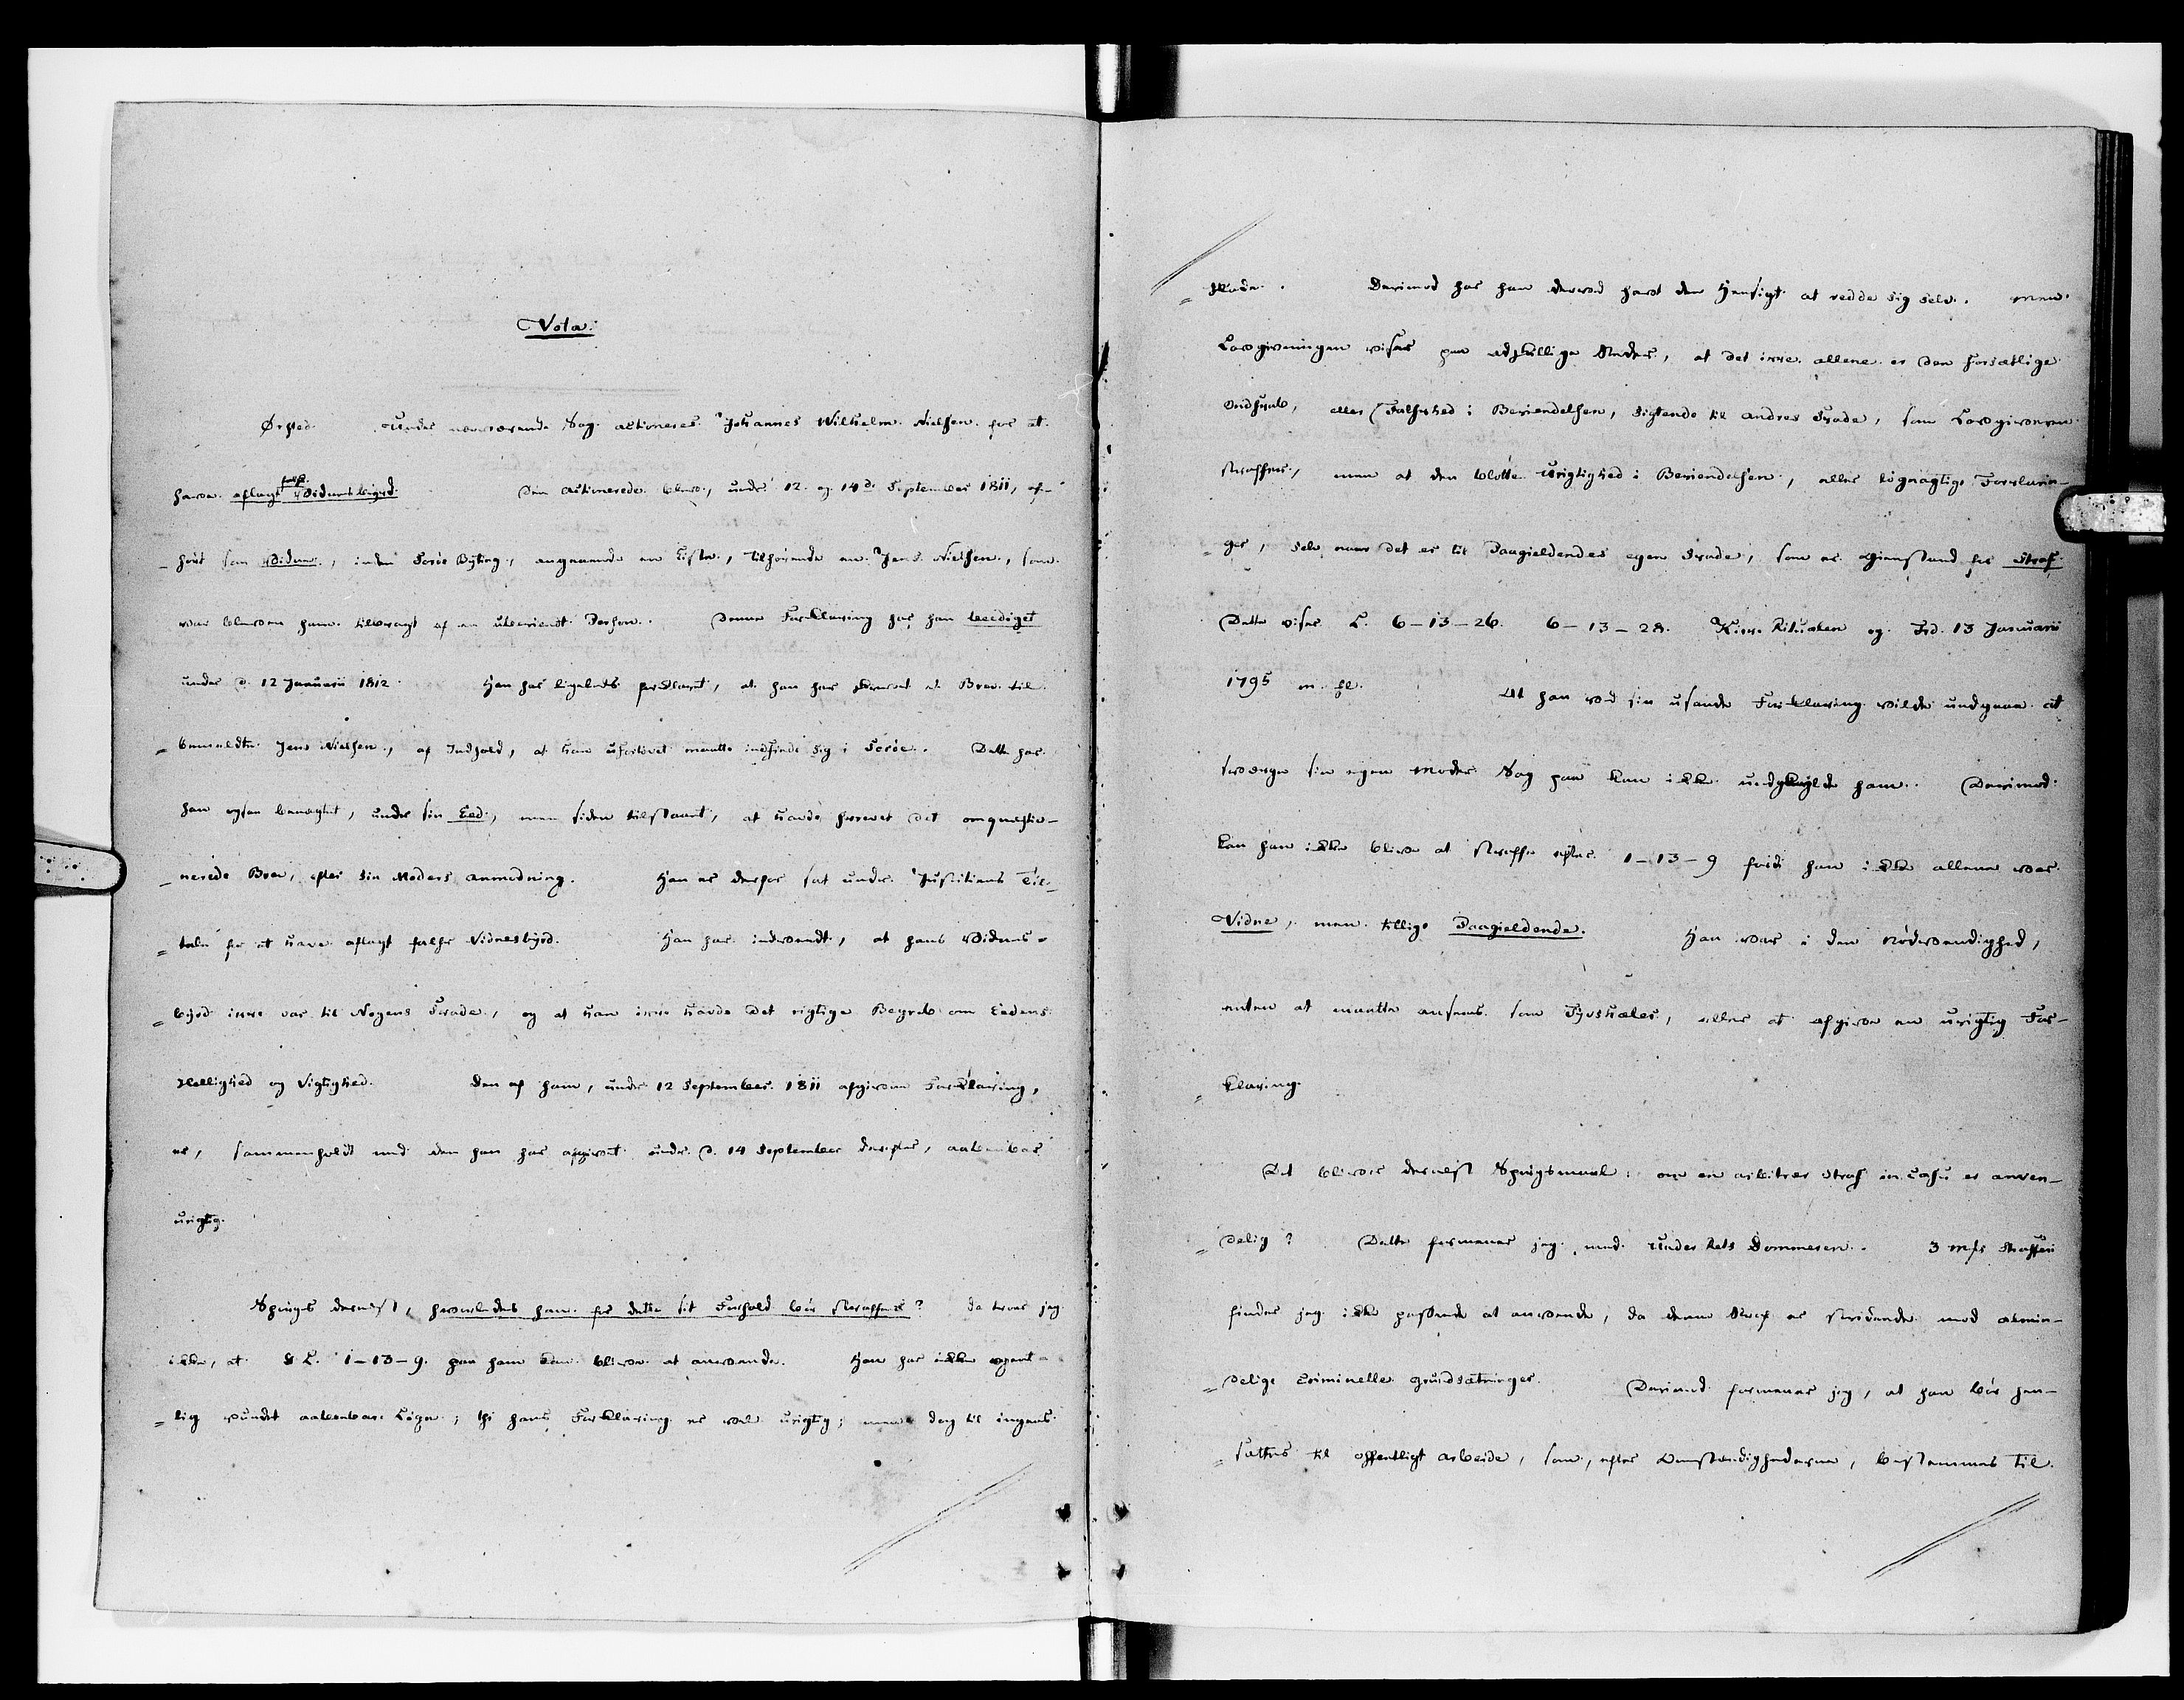 Vota.
Ørsted. Under nærværende Sag actioneres Johannes Wilhelm Nielsen for at
have aflagt falsk Vidnesbyrd. Den actionerede blev, under 12. og 14d. September 1811, af-
-hört som Vidne, inden Soröe Byting, angaaende en Kiste, tilhörende en Jens Nielsen, som
var bleven ham tilbragt af en ubekiendt Person. Denne Forklaring har han beediget
under d. 12 Januarii 1812. Han har ligeledes forklaret, at han har skrevet et Brev til
=bemeldte Jens Nielsen, af Indhold, at han ufortövet maatte indfinde sig i Soröe. Dette har
han ogsaa benægtet, under sin Eed, men siden tilstaaet, at have skrevet det omqvæstio-
-nerede Brev, efter sin Moders anmodning. Han er derfor sat under Justitiens Til-
=tale for at have aflagt falsk Vidnesbyrd. Han har indvendt, at hans Vidnes-
=byrd ikke var til Nogens Skade, og at han ikke havde det rigtige Begreb om Eedens
Hellighed og Vigtighed. Den af ham, under 12 September 1811 afgivne Forklaring,
er, sammenholdt med den han har afgivet under d. 14 September derefter, aabenbar
urigtig.
Spörges dernæst, hvorledes han for dette sit Forhold bör straffes? da troer jeg
ikke, at L. 1-13-9. paa ham kan blive at anvende. Han har ikke egent-
=lig vundet aabenbare Lögn; thi hans Forklaring er vel urigtig; men dog til ingens
=Skade. Derimod har han derved havt den Hensigt at redde sig selv. Men
Lovgivningen viser paa adskillige Steder, at det ikke allene er den forsætlige
Ondskab, eller Falskhed i Bekiendelsen, sigtende til andres Skade, som Lovgiveren
straffer, men at den blotte Urigtighed i Bekiendelsen, eller lögnagtige Forklarin-
=ger, selv naar det er til Paagieldendes egen Skade, som er Gienstand for Straf.
Dette viser L. 6-13-26. 6-13-28. Kirke Ritualen og Frd. 13 Januarii
1795 m. fl. At han ved sin usande Forklaring vilde undgaae at
sværge sin egen Moder Sag paa kan ikke undskylde ham. Derimod
kan han ikke blive at straffe efter 1-13-9 fordi han ikke allene var
Vidne, men tillige Paagieldende. Han var i den Nödvendighed,
enten at maatte ansees som Tyvshæler, eller at afgive en urigtig For-
=klaring.
Det bliver dernæst Spörgsmaal: om en arbitrær Straf in casu er anven-
=delig? Dette formener jeg med Under Rets Dommeren. 3 Mks Straffen
finder jeg ikke passende at anvende, da denne Straf er stridende mod almin-
=delige criminelle Grundsætninger. Derimod formener jeg, at han bör hen-
=sættes til offentligt Arbeide, som, efter Omstændighederne, bestemmes til